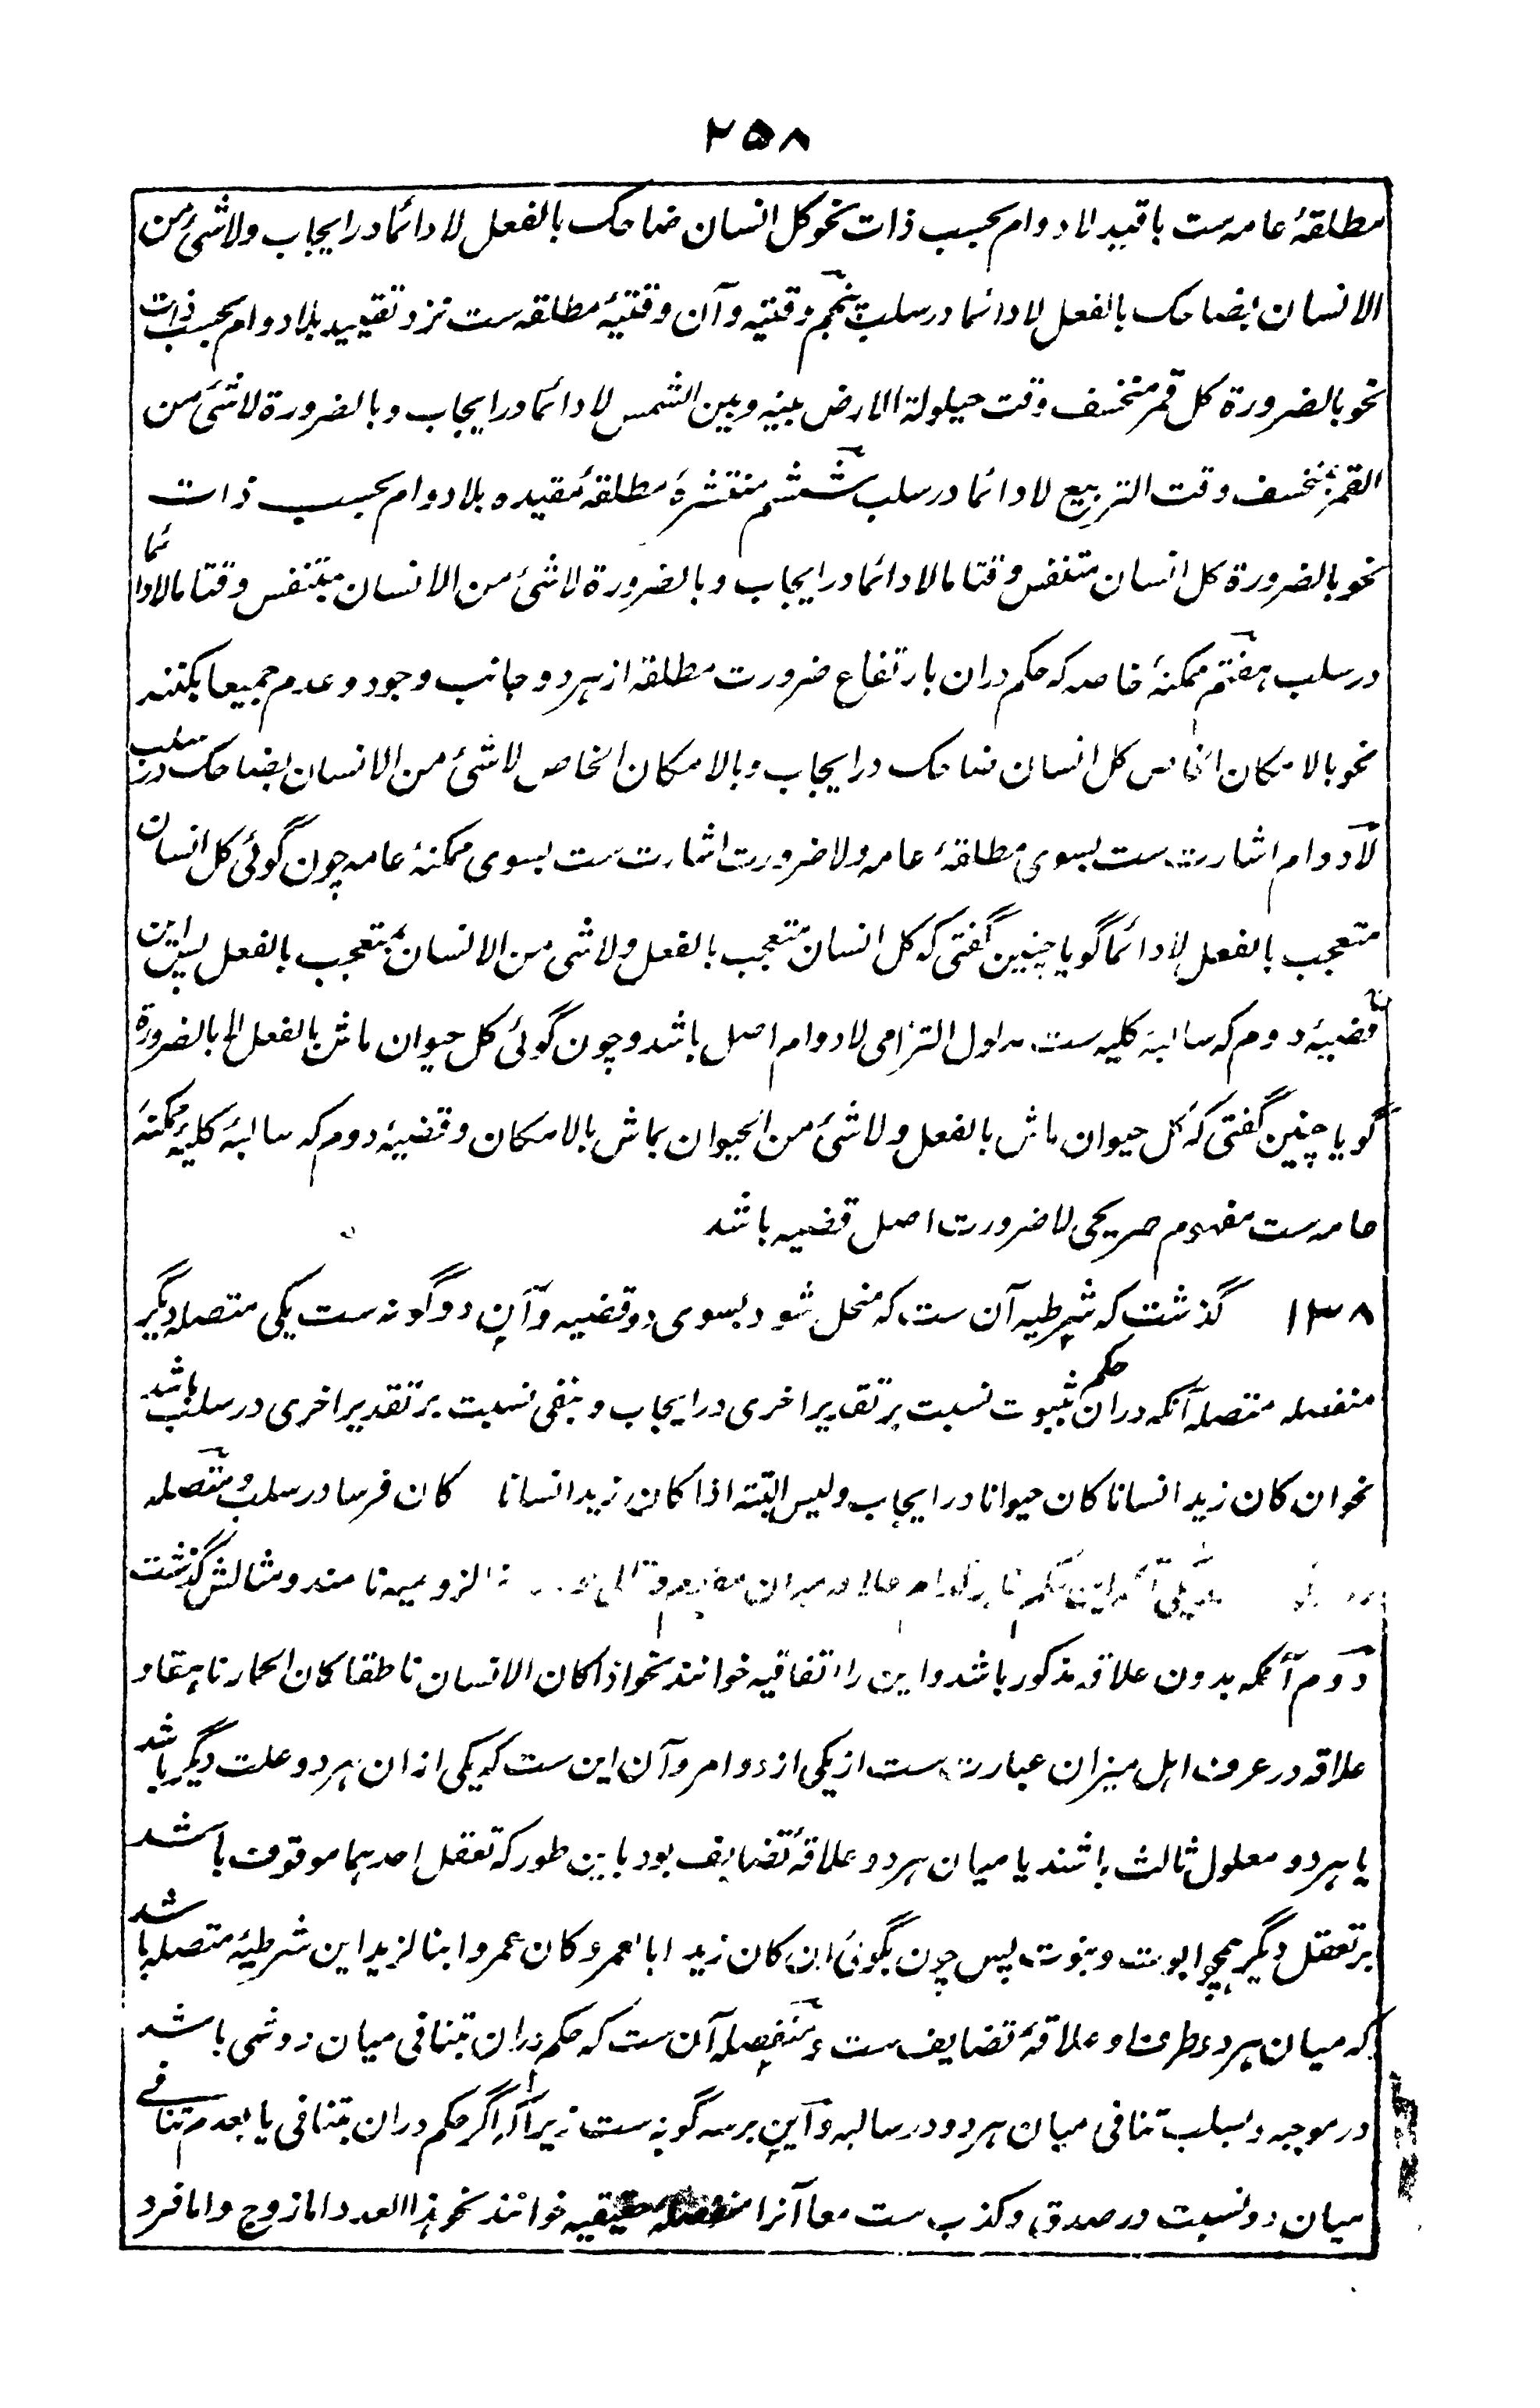 ۲۵۸
مطلقهٔ عامه ست باقید لا دوام بحسب ذات نحو کل انسان ضاحک بالفعل لا دائما در ایجاب و لا شئ من
الانسان بضاحک بالفعل لا دائما در سلب پنجم وقتیه و آن وقتیهٔ مطلقه ست نزد تقیید بلا دوام بحسب ذات
نحو بالضرورة کل قمر منخسف وقت حیلولة الارض بینه و بین الشمس لا دائما در ایجاب و بالضرورة لا شئ من
القمر بمنخسف وقت التربیع لا دائما در سلب ششم منتشرهٔ مطلقهٔ مقیده بلا دوام بحسب ذات
نحو بالضرورة کل انسان متنفس وقتا ما لا دائما در ایجاب و بالضرورة لا شئ من الانسان بمتنفس وقتا ما لا دائما
در سلب هفتم ممکنهٔ خاصه که حکم دران بارتفاع ضرورت مطلقه از هر دو جانب وجود و عدم جمیعا بکنند
نحو بالامکان الخاص کل انسان ضاحک در ایجاب و بالامکان الخاص لا شئ من الانسان بضاحک در سلب
لا دوام اشارت ست بسوی مطلقهٔ عامه و لا ضرورت اشارت ست بسوی ممکنهٔ عامه چون گوئی کل انسان
متعجب بالفعل لا دائما گویا چنین گفتی که کل انسان متعجب بالفعل و لا شی من الانسان بمتعجب بالفعل پس این
قضیهٔ دوم که سالبهٔ کلیه ست مدلول التزامی لا دوام اصل باشد و چون گوئی کل حیوان ماش بالفعل لا بالضرورة
گویا چنین گفتی که کل حیوان ماش بالفعل و لا شئ من الحیوان بماش بالامکان و قضیهٔ دوم که سالبهٔ کلیهٔ ممکنهٔ
عامه ست مفهوم صریحی لا ضرورت اصل قضیه باشد
۱۳۸ گذشت که شرطیه آن ست که منحل شود بسوی دو قضیه و آن دو گونه ست یکی متصله دیگر
منفصله متصله آنکه دران حکم بثبوت نسبت بر تقدیر اخری در ایجاب و بنفی نسبت بر تقدیر اخری در سلب باشد
نحو ان کان زید انسانا کان حیوانا در ایجاب و لیس البتة اذا کان زید انسانا کان فرسا در سلب و متصله
لزومیه نامند و مثالش گذشت
دوم آنکه بدون علاقه مذکور باشد و این را اتفاقیه خوانند نحو اذا کان الانسان ناطقا کان الحمار ناهقا و
علاقه در عرف اهل میزان عبارت ست از یکی از دو امر و آن این ست که یکی ازان هر دو علت دیگر باشد
یا هر دو معلول ثالث باشند یا میان هر دو علاقهٔ تضایف بود باین طور که تعقل احدهما موقوف باشد
بر تعقل دیگر همچو ابوت و بنوت پس چون بگوئی ان کان زید ابا لعمرو کان عمرو ابنا لزید این شرطیهٔ متصله باشد
که میان هر دو طرف او علاقهٔ تضایف ست و منفصله آن ست که حکم دران بتنافی میان دو شی باشد
در موجبه و بسلب تنافی میان هر دو در سالبه و این بر سه گونه ست زیرا که اگر حکم دران بتنافی یا بعدم تنافی
میان دو نسبت در صدق و کذب ست معا آنرا منفصله حقیقیه خوانند نحو هذا العدد اما زوج و اما فرد